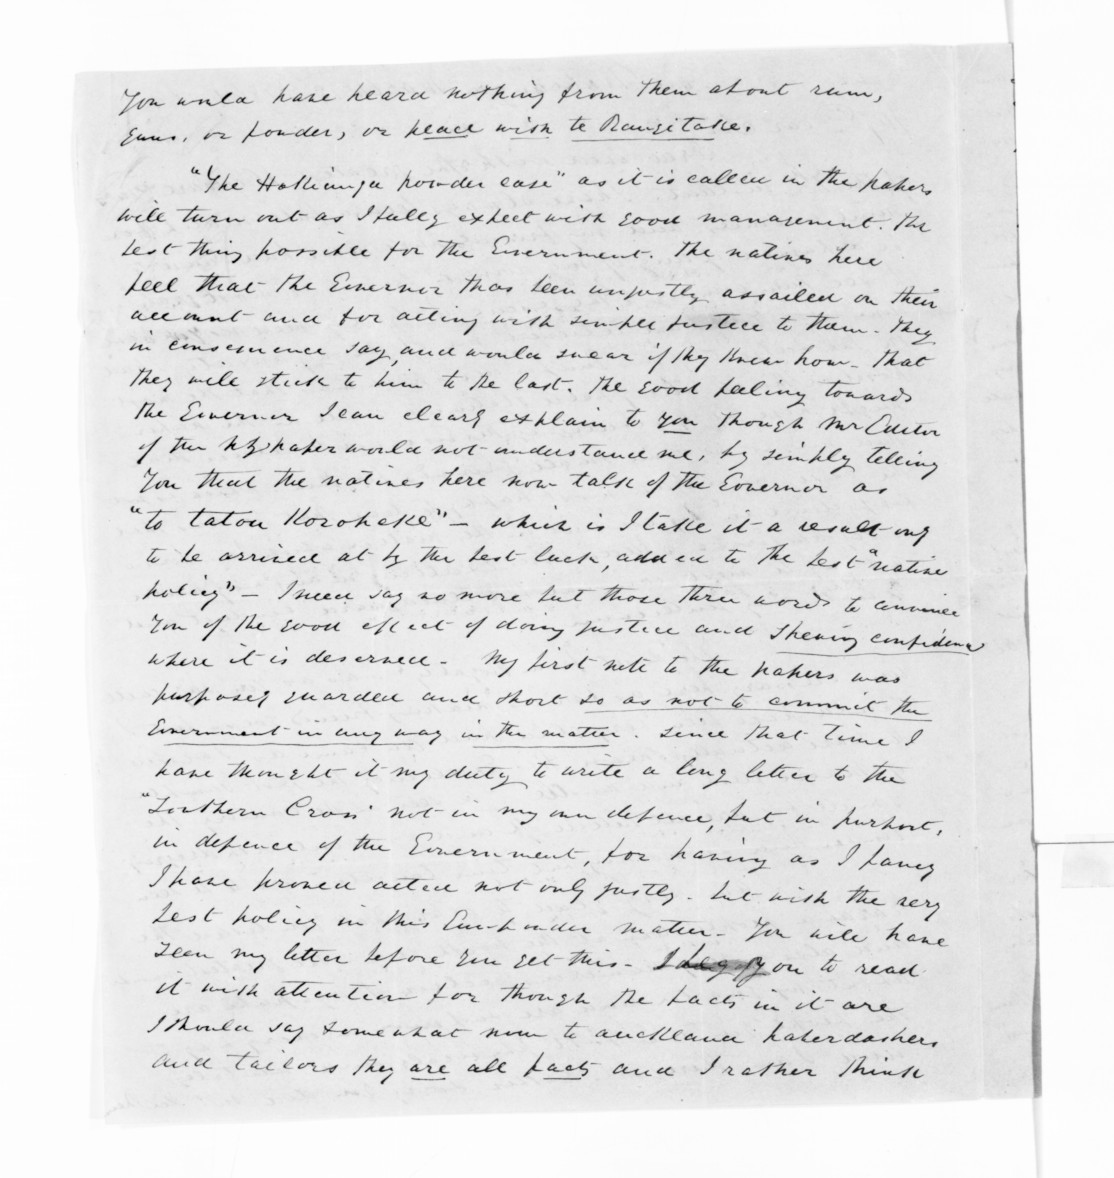 You would have heard nothing from them about rum,
guns, or powder, or peace with te Rangitake.
"The Hokianga powder case" as it is called in the papers
will turn out as I fully expect with good management. the
best thing possible for the Government. The natives here
feel that the Governor has been unjustly assailed on their
account and for acting with simple justice to them. They
in consequence say, and would swear if they knew how - that
they will stick to him to the last. The good feeling towards
the Governor I can clearly explain to you though Mr Editor
of the NZ paper would not understand me, by simply telling
You that the natives here now talk of the Governor as
"to tatou Koroheke" - which is I take it a result only
to be arrived at by the best luck, added to the best "native
policy" - I need say no more but those three words to convince
You of the good effect of doing justice and shewing confidence
where it is deserved - My first note to the papers was
purposely guarded and short so as not to commit the
Government in any way in the matter. Since that time I
have thought it my duty to write a long letter to the
"Southern Cross" not in my own defence, but in purport,
in defence of the Government, for having as I fancy
I have proved acted not only justly - but with the very
best policy in this Gun-powder matter - You will have
seen my letter before you get this - I beg you to read
it with attention for though the facts in it are
I should say somewhat new to auckland haberdashers
and tailors they are all facts and I rather think